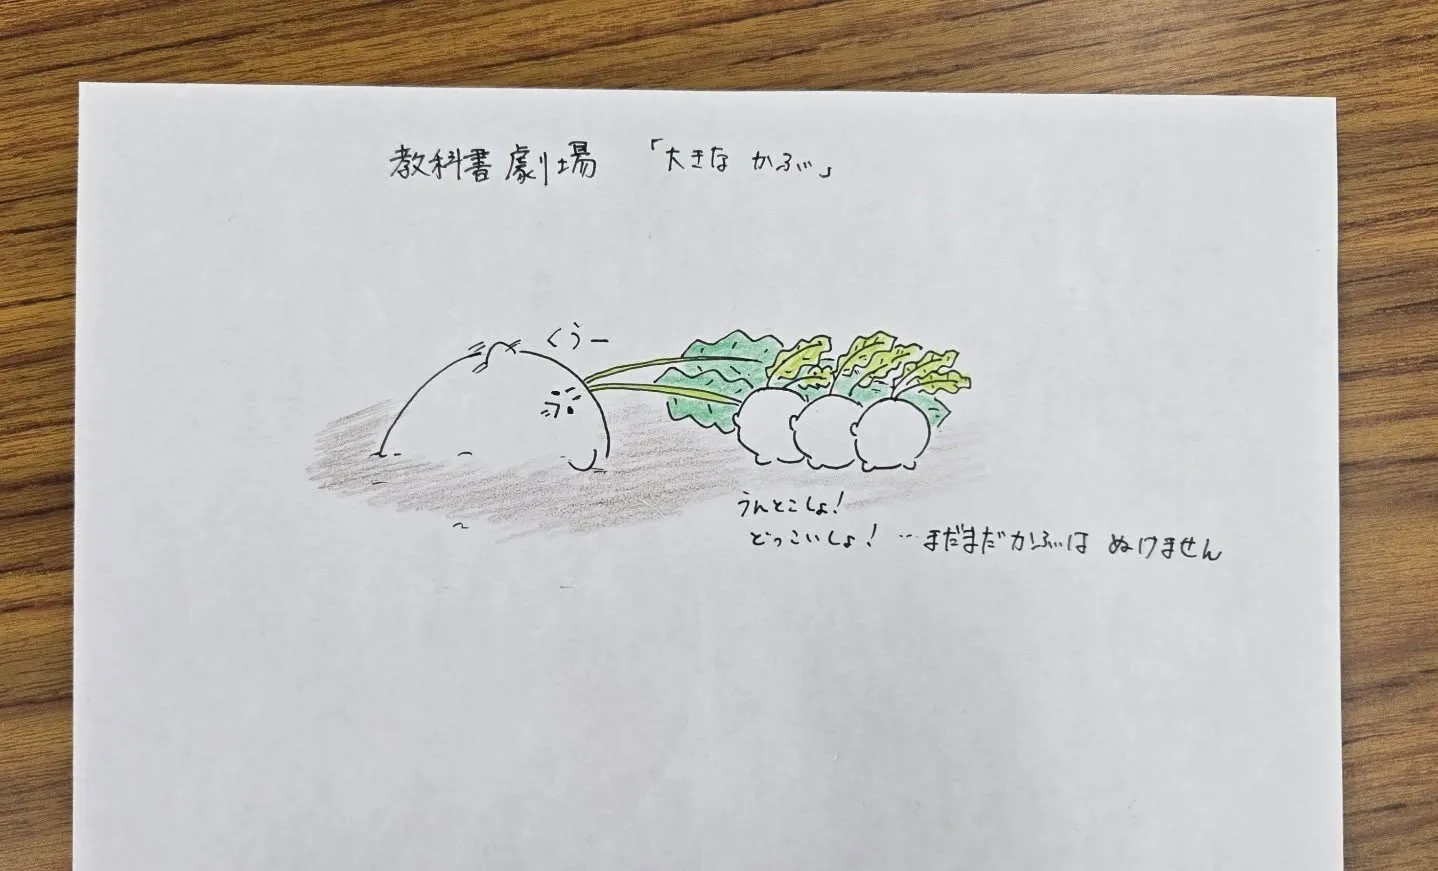 教科書劇場 「大きな かぶ」
くうー
うんとこしょ!
どっこいしょ! …まだまだかぶは ぬけません